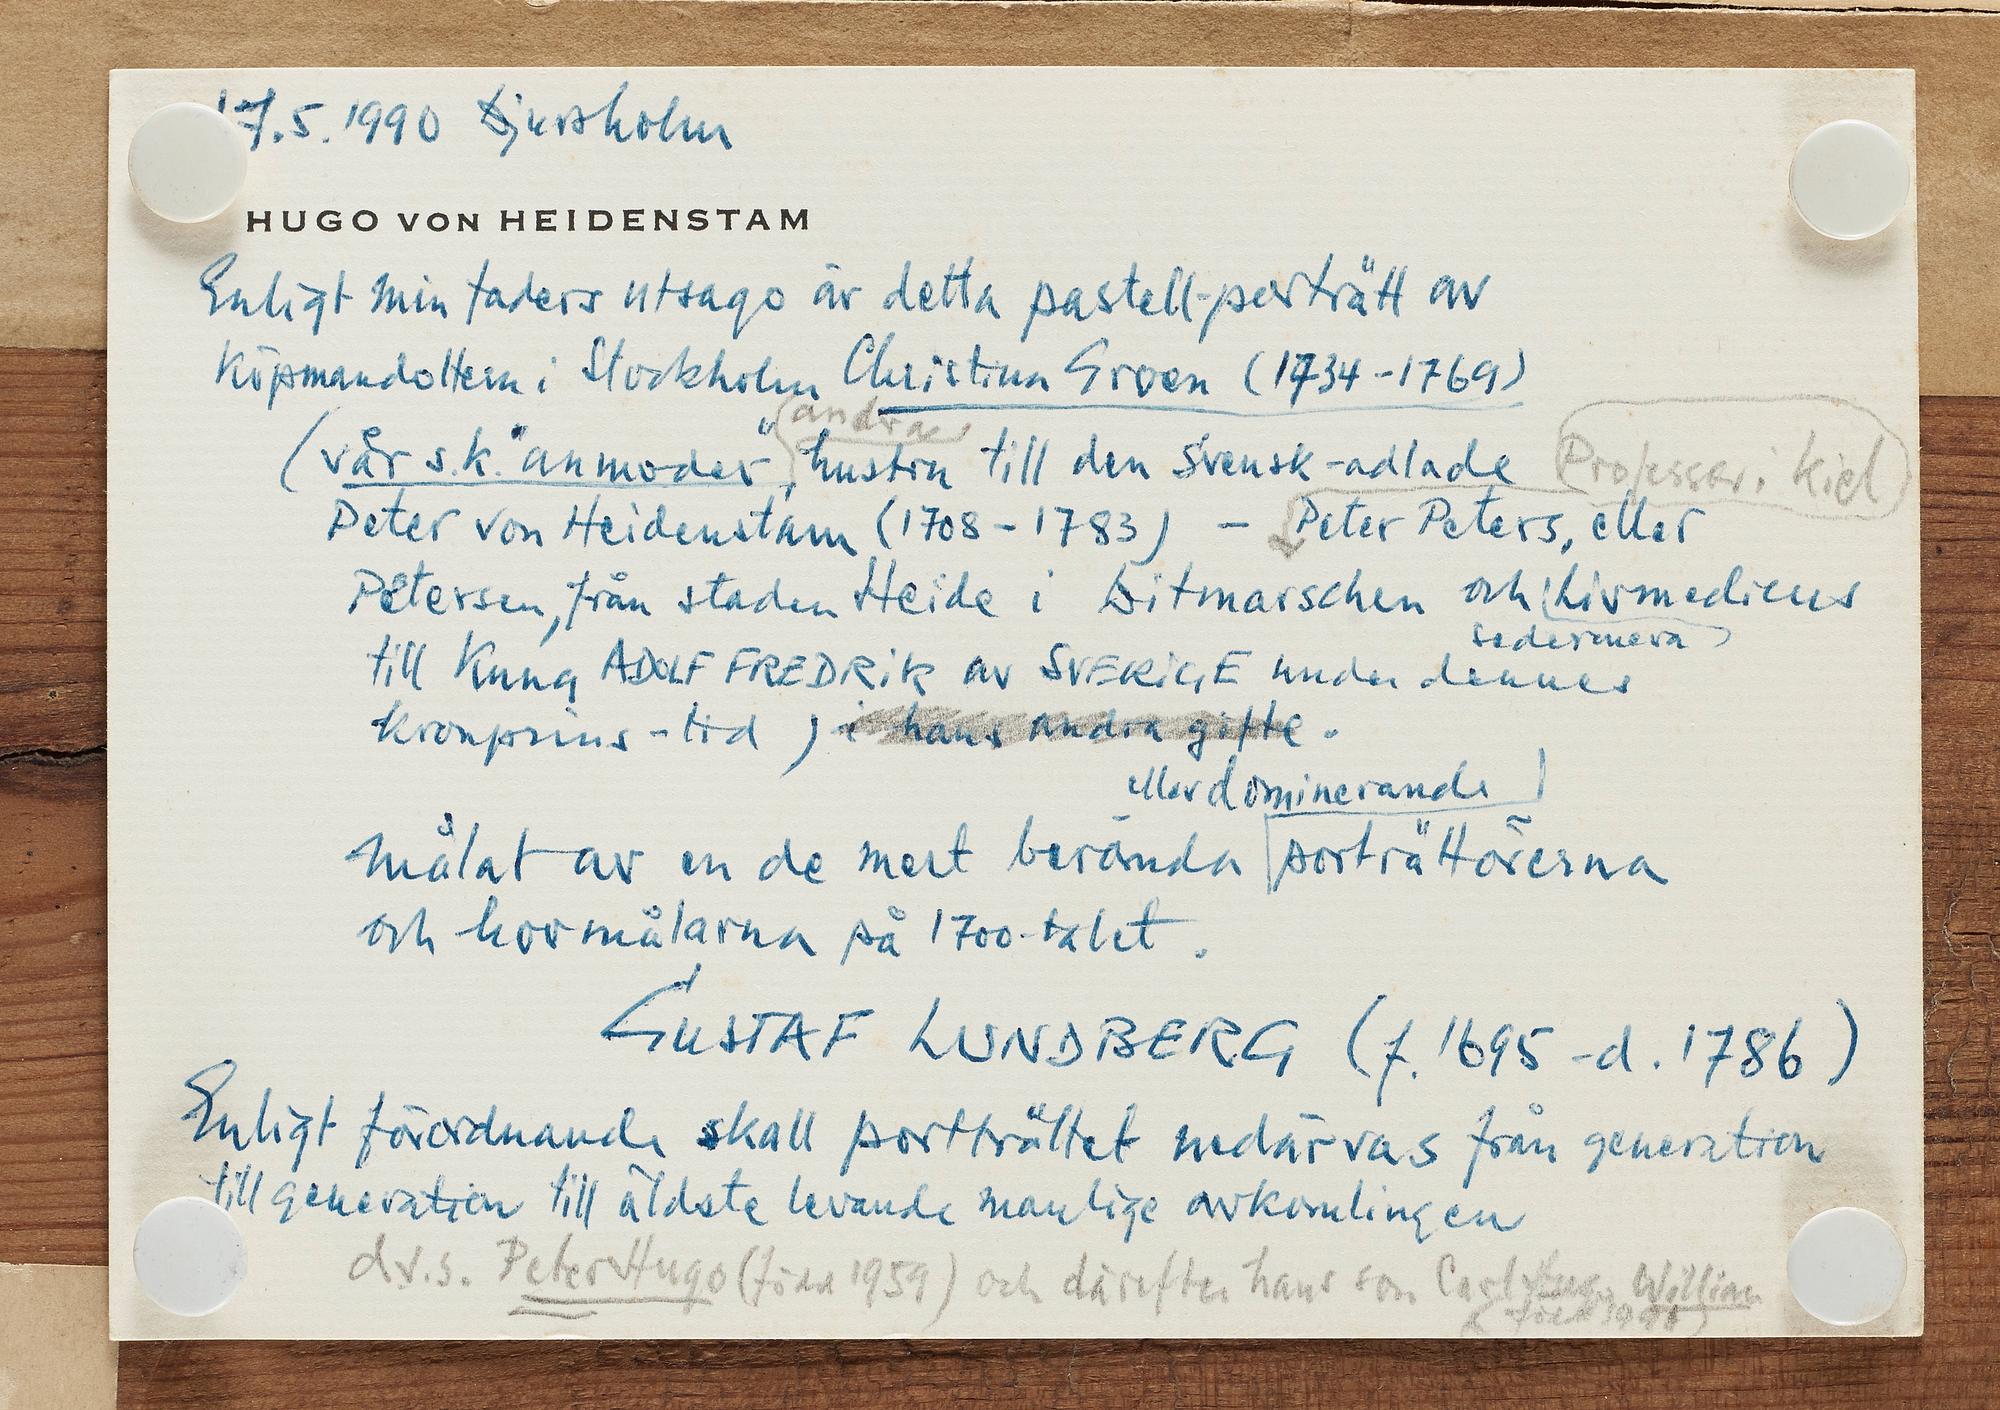 17.5.1990 Djursholm
HUGO VON HEIDENSTAM
Enligt min faders utsago är detta pastell-porträtt av
Köpmandottern i Stockholm Christina Groen (1734-1769)
andra
(vår s.k. "anmoder", hustru till den Svensk-adlade Professor i Kiel
Peter von Heidenstam (1708-1783) - Peter Peters, eller
Petersen, från staden Heide i Ditmarschen och Livmedicus
sedermera
till Kung ADOLF FREDRIK av SVERIGE under dennes
kronprins-tid) i hans andra gifte.
eller dominerande
målat av en de mest berömda porträttörerna
och hovmålarna på 1700-talet.
GUSTAF LUNDBERG (f. 1695-d. 1786)
Enligt förordnande skall porträttet nedärvas från generation
till generation till äldste levande manlige avkomlingen
d.v.s. Peter Hugo (född 1959) och därefter hans son Carl William
(född